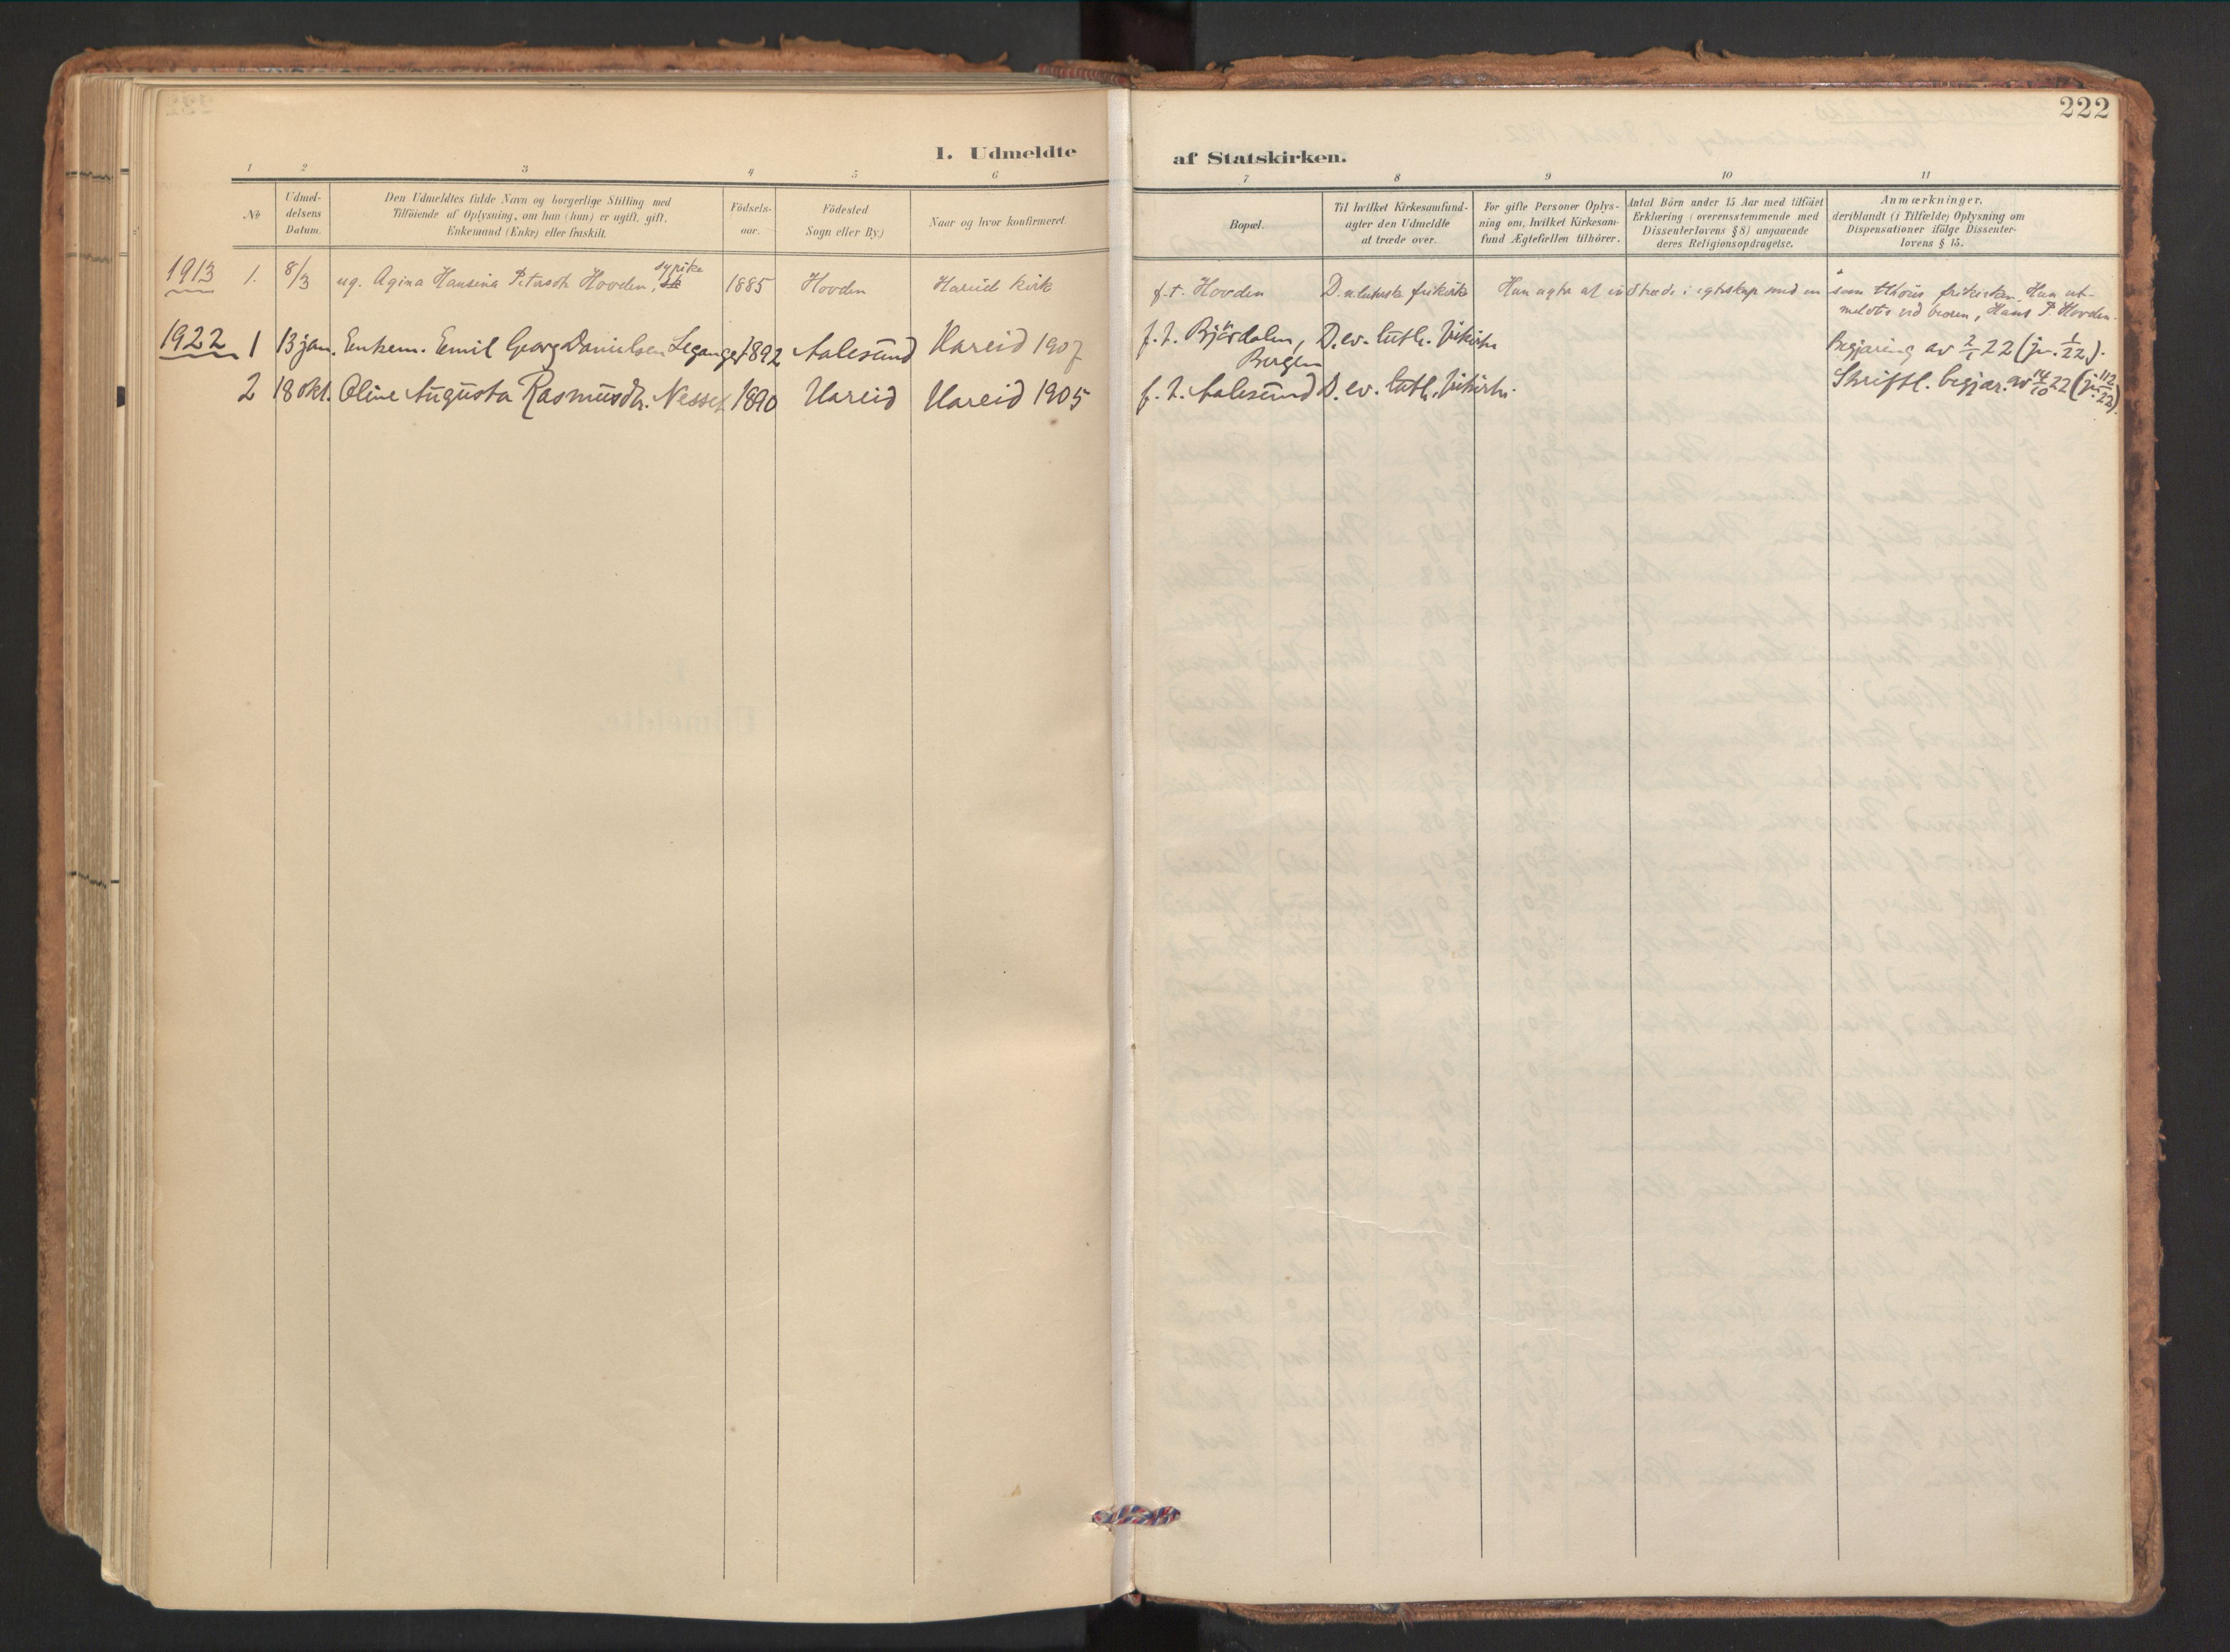 222
1. Udmeldte af Statskirken.
1 2 3 4 5 6 7 8 9 10 11
No
Udmel-
delsens
Datum.
Den Udmeldtes fulde Navn og borgerlige Stilling med
Tilföiende af Oplysning, om han (hun) er ugift, gift,
Enkemand (Enke) eller fraskilt.
Födsels-
aar.
Födested
Sogn eller By.)
Naar og hvor konfirmeret.
Bopæl.
Til hvilket Kirkesamfund
agter den Udmeldte
at træde over.
For gifte Personer Oplys-
ning om, hvilket Kirkesam-
fund Ægtefællen tilhörer.
Antal Börn under 15 Aar med tilföiet
Erklæring (overensstemmende med
Dissenterlovens § 8) angaaende
deres Religionsopdragelse.
Anmærkninger,
deriblandt (i Tilfælde) Oplysning om
Dispensationer ifölge Dissenter-
lovens § 15.
1913 1. 8/3 ug. Agina Hansina Petersdtr Hovden, sypike 1885 Hovden Hareid kirk f.t. Hovden D. ev. lutherske frikirke Hun agter at indtræde i egteskap med en som tilhörer frikirken. Hun ut-
meldtes ved broren, Hans P. Hovden.
1922 1 13 jan. Enkem. Emil Georg Danielsen Leganger 1892 Aalesund Hareid 1907 f.t. Björdalen, D. ev. luth. frikirke Begjæring av 2/1 22 (jr. 1/22).
Bergen
2 18 okt. Oline Augusta Rasmusdtr. Nesset 1890 Hareid Hareid 1905 f.t. Aalesund D. ev. luth. frikirke. Skriftl. begjær. av 14/10 22 (jr. 112/22).